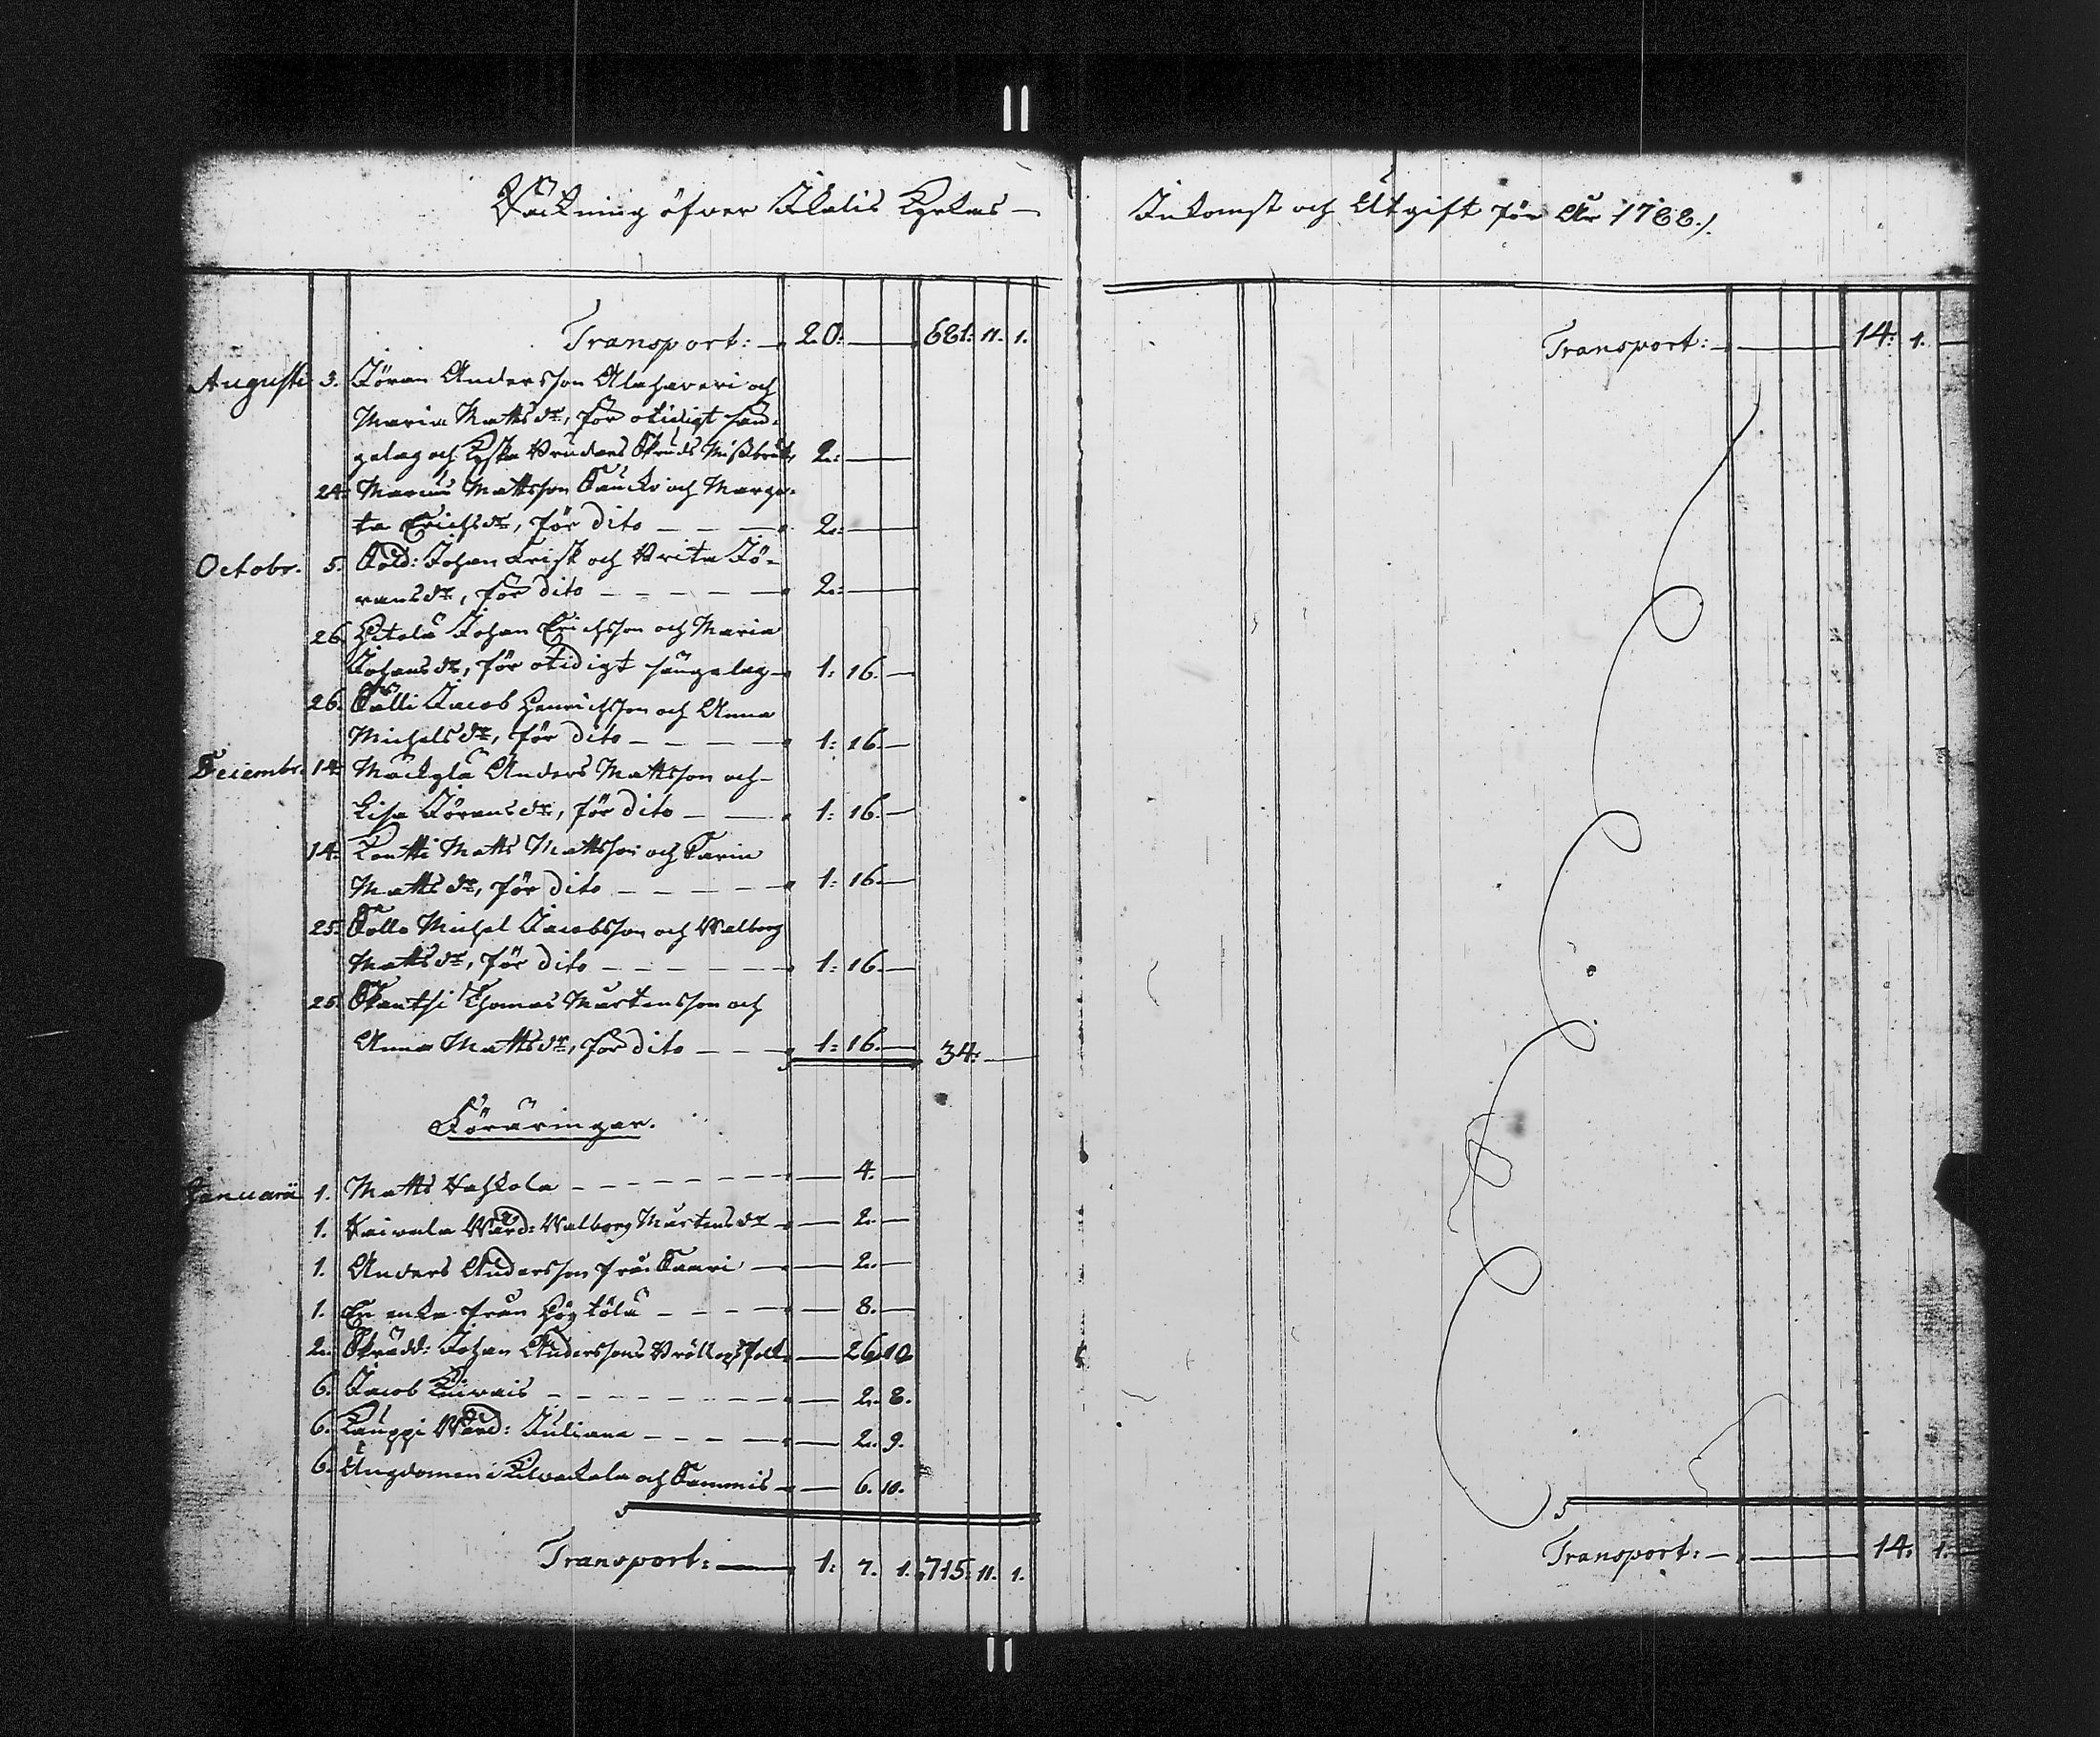 Räckning öfwer Ikalis Kyrkas —
Transport: — 20: — 681: 11. 1.
Augusti 3. Jöran Andersson Alahaveri och
Maria Mattsdr, för otidigt sän-
gelag och Kyska Brudens Skruds Missbruk, 2: —
24. Marcus Mattsson Saucko och Marga-
ta Erichsdr, för dito — — — 2: —
Octobr. 5. Sold: Johan Frisk och Brita Jö-
ransdr, för dito — — — — — 2: —
26. Johan Erichsson och Maria
Johansdr, för otidigt sängelag — 1: 16. —
26. Jacob Henrichsson och Anna
Michelsdr, för dito — — — — 1: 16. —
Decembr. 14. Anders Mattsson och
Lisa Jöransdr, för dito — — 1: 16. —
14. Kontti Matts Mattsson och Carin
Mattsdr, för dito — — — — — 1: 16. —
25. Michel Jacobsson och Walborg
Mattsdr, för dito — — — — — 1: 16. —
25. Thomas Mårtensson och
Anna Mattsdr, för dito — — — 1: 16. — 34: —
Föräringar.
Januarii 1. Matts — — — — — — — — 4. —
1. Wärd: Walborg Mårtensdr — — 2. —
1. Anders Andersson från Saari — — 2. —
1. En enka från — — — — — 8. —
2. Skrädd: Johan Anderssons Bröllopsfolk — 26. 10.
6. Jacob — — — — — — — — — 2. 8.
6. Kauppi Wärd: Juliana — — — — — 2. 9.
6. Ungdomen i Kilvackala och Sammis — — 6. 10.
Transport: — 1: 7. 1. 715: 11. 1.
Inkomst och Utgift för År 1788.
Transport: — 14: 1. —
Transport: — 14: 1. —